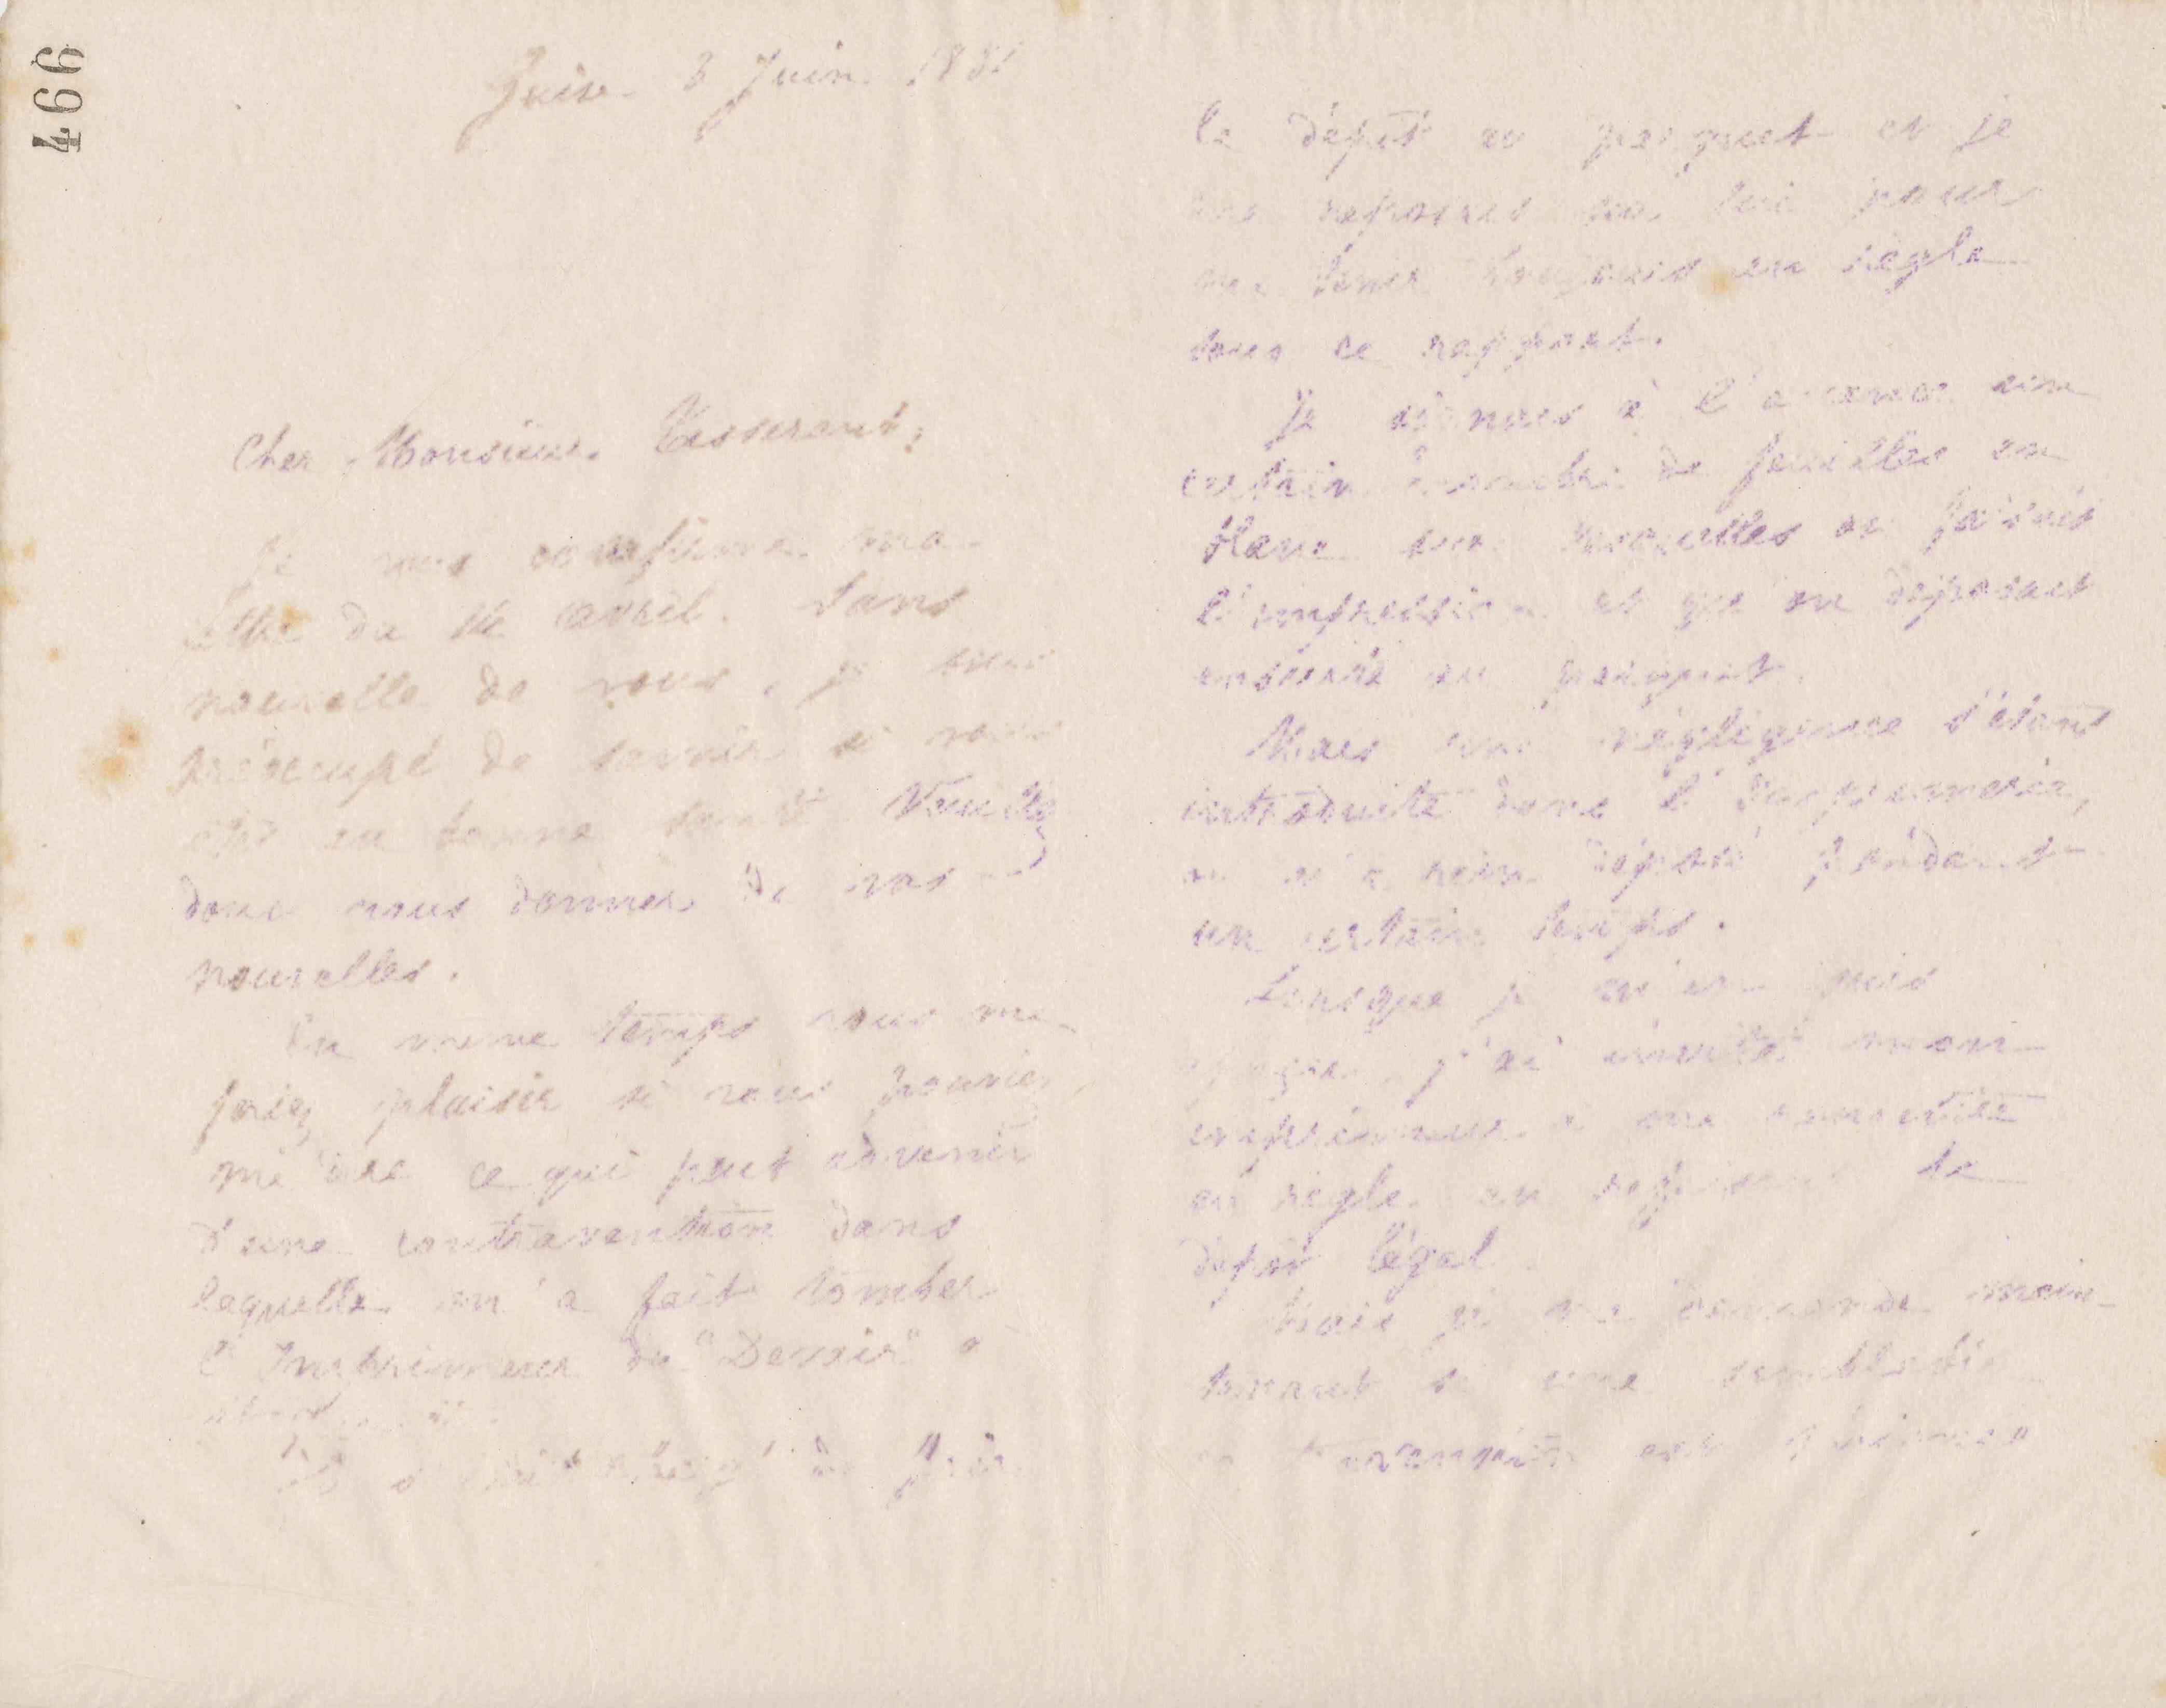 466
Guise 3 Juin 1881
Cher Monsieur Tisserant,
Je vous confirme ma
lettre du 14 avril. Sans
nouvelle de vous, je suis
préoccupé de savoir si vous
êtes en bonne santé. Veuillez
donc nous donner de vos
nouvelles.
En même temps vous me
feriez plaisir si vous pouviez
me dire ce qui peut advenir
d'une contravention dans
laquelle on a fait tomber
l'Imprimeur du "Devoir" à
de faire
le dépôt au parquet et je
me reposais sur lui pour
me tenir toujours en règle
sous ce rapport.
Je signais à l'avance un
certain nombre de feuilles en
blanc sur lesquelles on faisait
l'impression et que on déposait
ensuite au parquet.
Mais une négligence s'étant
introduite dans l'Imprimerie,
on n'a rien déposé pendant
un certain temps.
Lorsque je m'en suis
j'ai invité mon
imprimeur à me remettre
en règle au de
dépôt légal.
Mais je me demande main-
tenant si une semblable
est